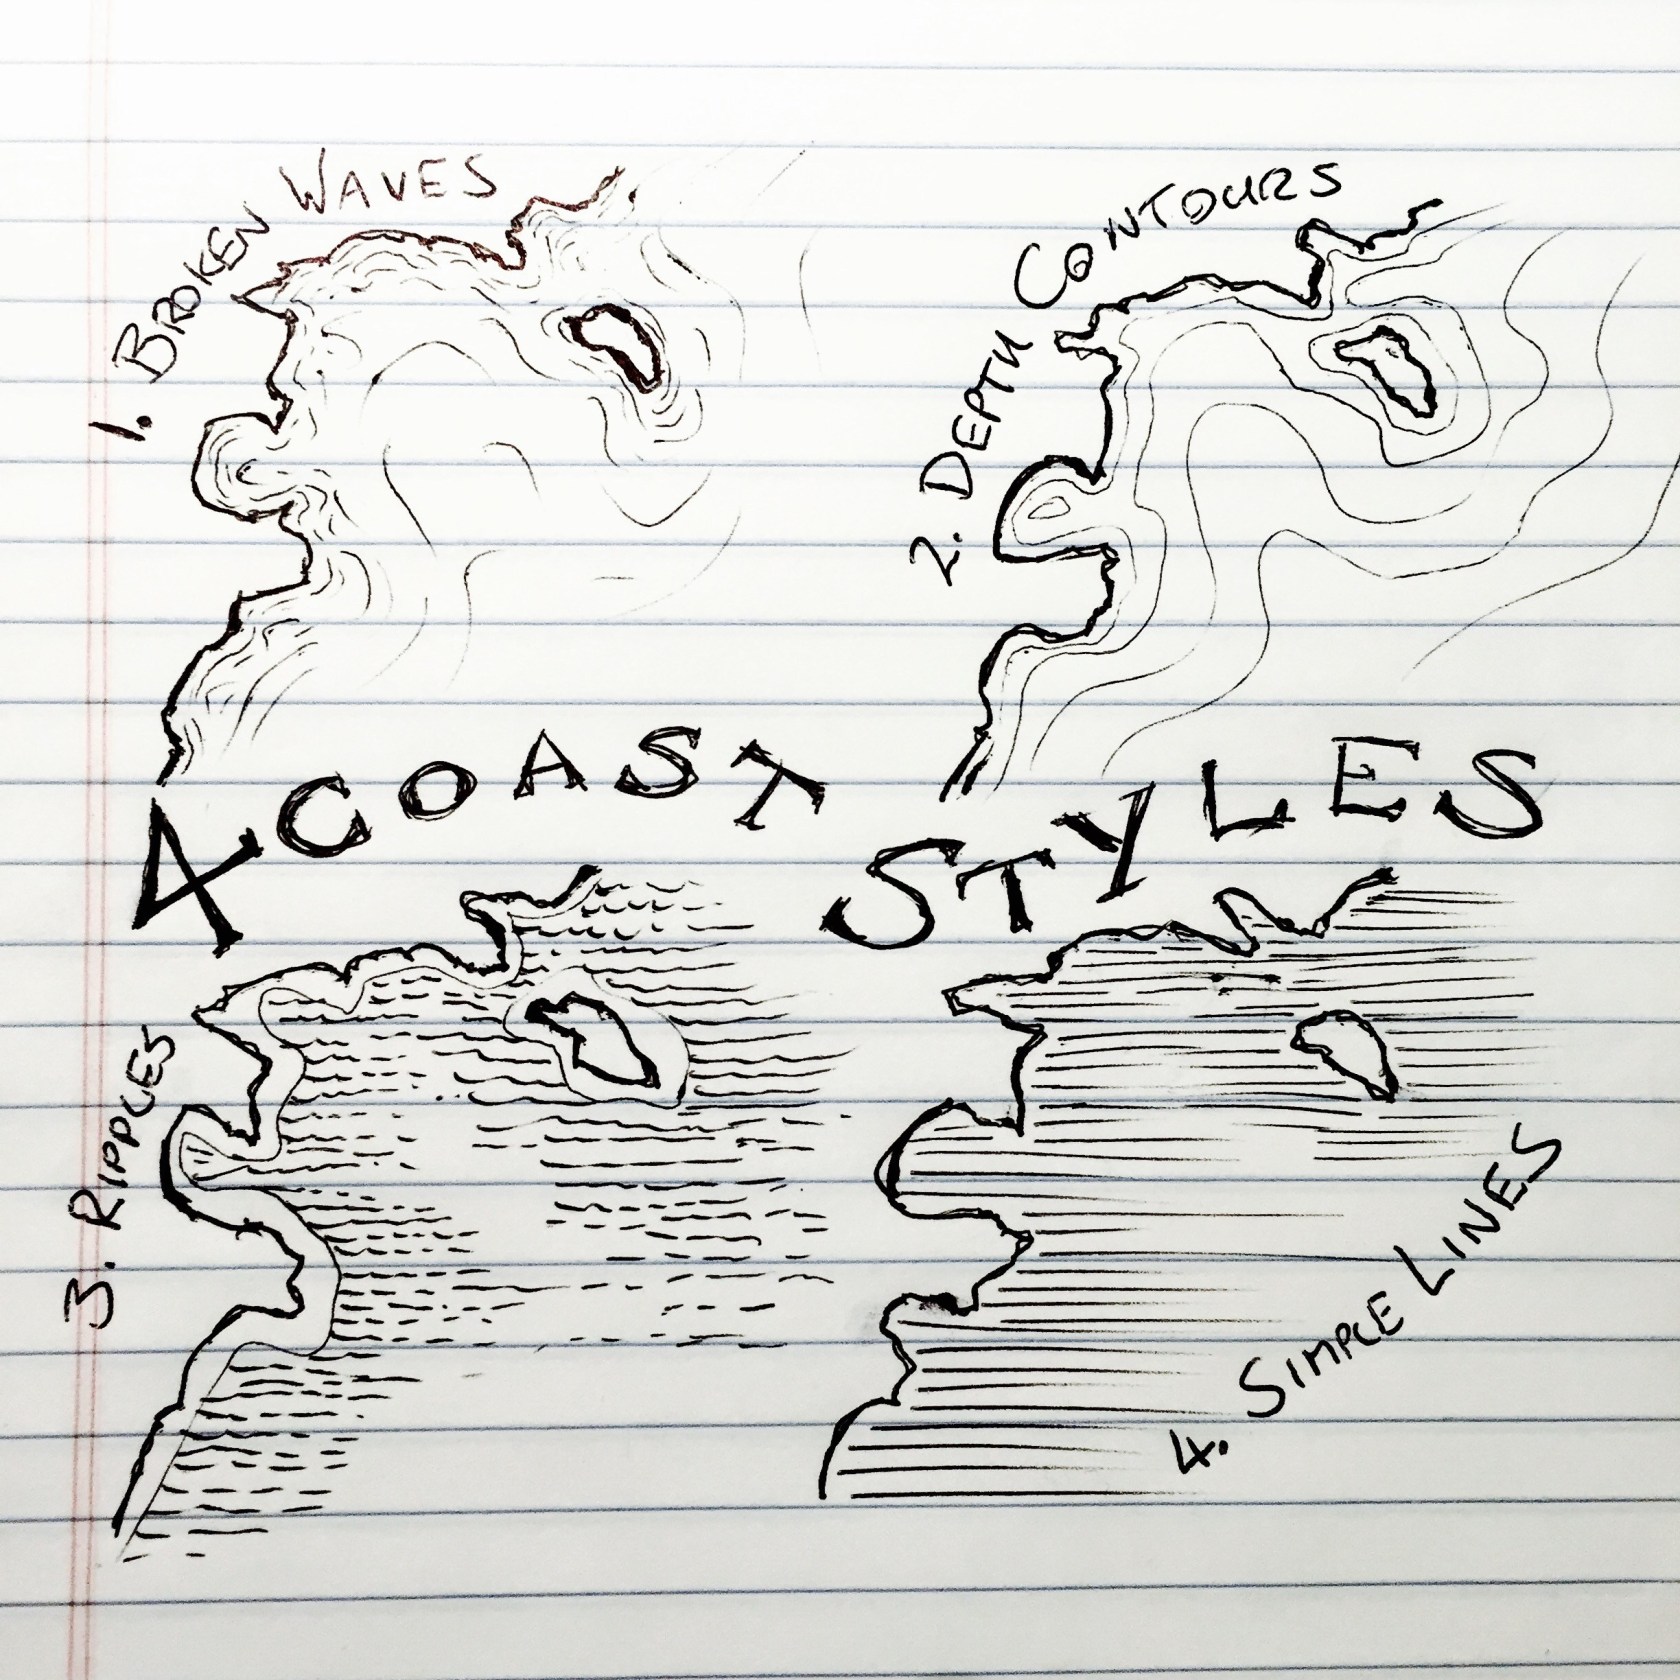 1. BROKEN WAVES
2. DEPTH CONTOURS
4 COAST STYLES
3. RIPPLES
4. SIMPLE LINES